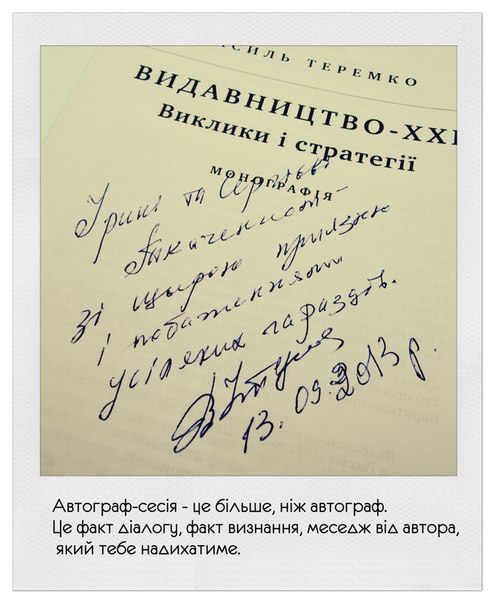 СИЛЬ ТЕРЕМКО
ВИДАВНИЦТВО-ХХІ
Виклики і стратегії
МОНОГРАФІЯ
Ірині та Сергієві
зі щирою приязню
і побажаннями
усіляких гараздів.
13.09.2013 р.
Автограф-сесія - це більше, ніж автограф.
Це факт діалогу, факт визнання, меседж від автора,
який тебе надихатиме.